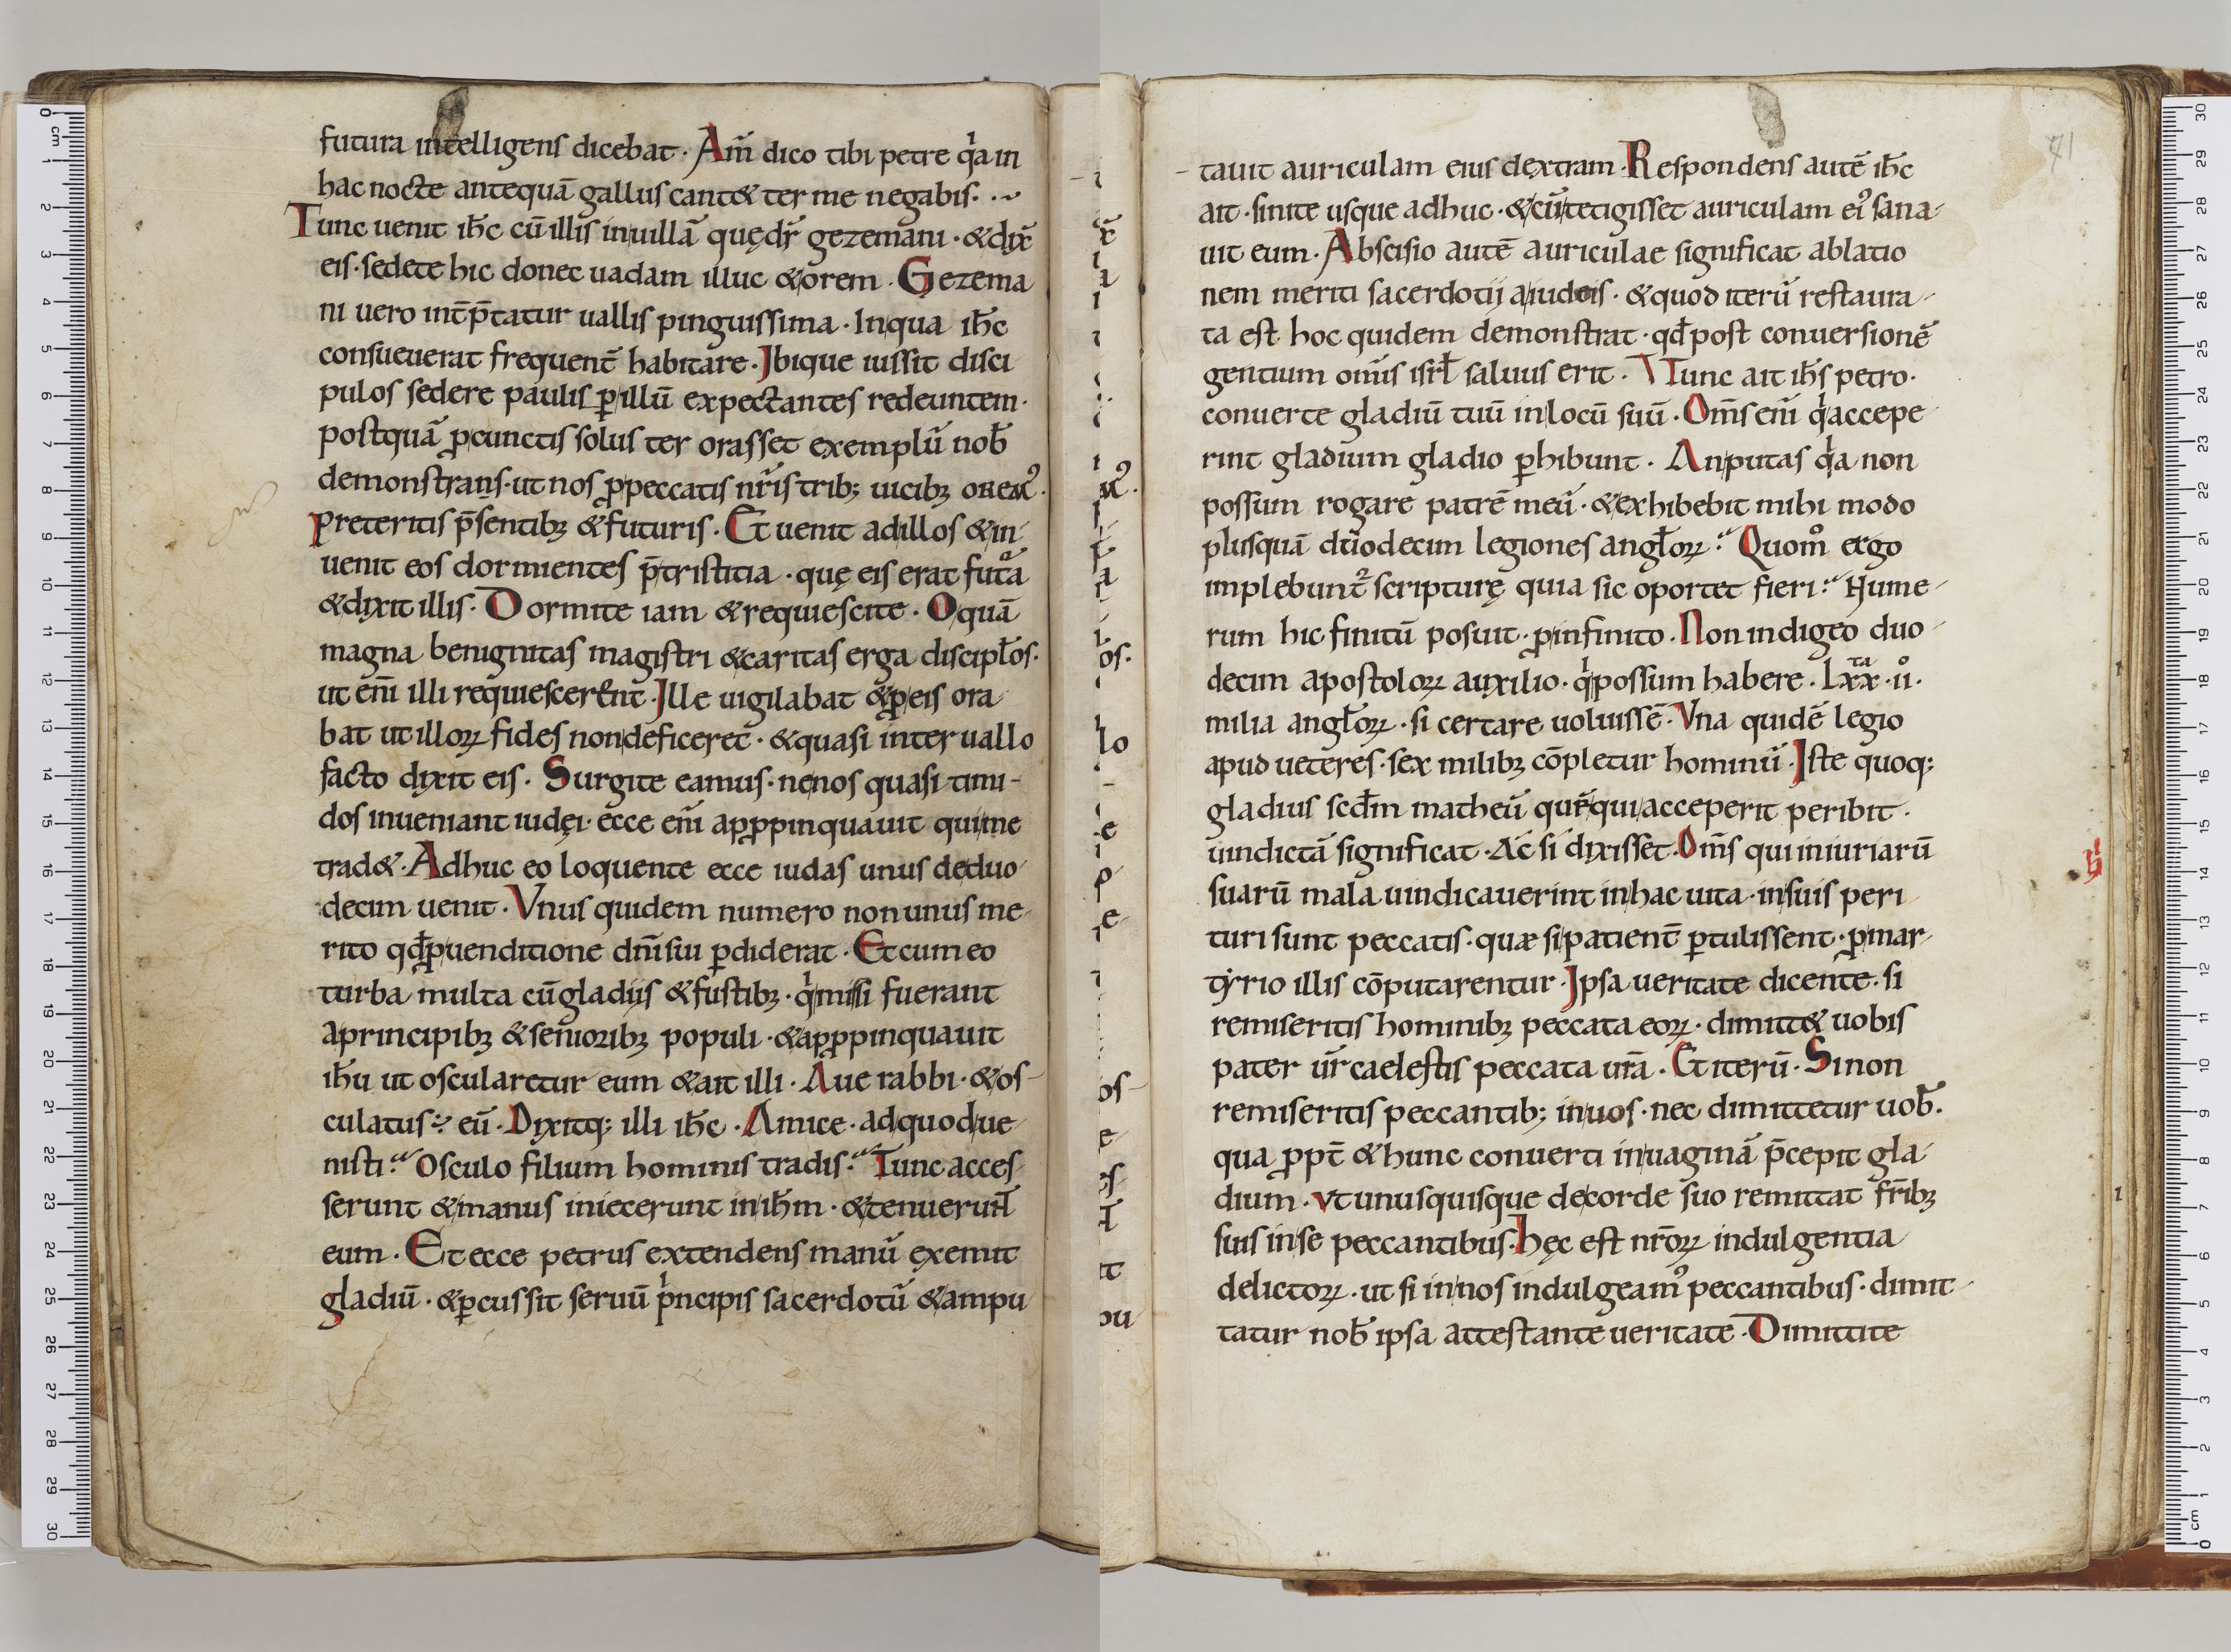 futura intelligens dicebat · Am̄ dico tibi petre qͥa in
hac nocte antequā gallus cant& ter me negabis.
Tunc uenit ih̄c cū illis in uillā quę dr̄ gezemani · & dix̄
eis · sedete hic donec uadam illuc & orem · Gezema
ni uero int̄p̄tatur uallis pinguissima · In qua ih̄c
consueuerat frequent̄ habitare · Ibique iussit disci
pulos sedere paulisꝑ illū expectantes redeuntem ·
postquā ꝓ cunctis solus ter orasset exemplū nob̄
demonstrans · ut nos ꝓ peccatis nr̄is trib; uicibꝫ oremꝰ ·
preteritis p̄sentibꝫ & futuris · Et uenit ad illos & in
uenit eos dormientes p̄ tristitia · quę eis erat futᷓa
& dixit illis · Dormite iam & requiescite · O quā
magna benignitas magistri & caritas erga discipl̄os ·
ut em̄ illi requiescerent · Ille uigilabat & ꝓ eis ora
bat ut illoꝝ fides non deficeret · & quasi interuallo
facto dixit eis · Surgite eamus · ne nos quasi timi-
dos inueniant iudęi · ecce em̄ apꝓpinquauit qui me
trad& · Adhuc eo loquente ecce iudas unus de duo
decim uenit · Vnus quidem numero non unus me
rito qđ ꝓ uenditione dn̄i sui ꝑdiderat · Et cum eo
turba multa cū gladijs & fustibꝫ · qͥ missi fuerant
a principibꝫ & senioribꝫ populi · & apꝓpinquauit
ih̄u ut oscularetur eum & ait illi · Aue rabbi · & os-
culatus ÷ eū · Dixitq; illi ih̄c · Amice · ad quod ue
nisti? Osculo filium hominis tradis? Tunc acces
serunt & manus iniecerunt in ih̄m · & tenuerunt
eum · Et ecce petrus extendens manū exemit
gladiū · & ꝑcussit seruū pͥncipis sacerdotū & ampu
71
tauit auriculam eius dextram · Respondens autē ih̄c
ait · sinite usque adhuc · & cū tetigisset auriculam eiꝰ sana-
uit eum · Abscisio autē auriculae significat ablatio
nem meriti sacerdotij a iudeis · & quod iterū restaura-
ta est hoc quidem demonstrat · qđ post conuersionē
gentium om̄is isrl̄ saluus erit · Tunc ait ih̄s petro ·
conuerte gladiū tuū in locū suū · Om̄s em̄ qͥ accepe
rint gladium gladio ꝑhibunt · An putas qͥa non
possum rogare patrē meū · & exhibebit mihi modo
plusquā duodecim legiones angl̄oꝝ? Quomͦ ergo
implebunt᷑ scripturę quia sic oportet fieri? Nume-
rum hic finitū posuit · ꝓ infinito · Non indigeo duo
decim apostoloꝝ auxilio · qͥ possum habere · Lxxͭᵃ · uͦ ·
milia angl̄oꝝ · si certare uoluissē · Vna quidē legio
apud ueteres · sex milibꝫ cōpletur hominū · Iste quoq;
gladius scđm matheū quē qui acceperit peribit ·
uindictā significat · Ac si dixisset · Om̄s qui iniuriarū
suarū mala uindicauerint in hac uita · in suis peri
turi sunt peccatis · quæ si patient̄ ꝑtulissent · ꝓ mar-
tyrio illis cōputarentur · Ipsa ueritate dicente · si
remiseritis hominibꝫ peccata eoꝝ · dimitt& uobis
pater ur̄ caelestis peccata urā · Et iterū · Si non
remiseritis peccantib; in uos · nec dimittetur uob̄ ·
qua ꝓpt̄ & hunc conuerti in uaginā p̄cepit gla-
dium · vt unusquisque de corde suo remittat fr̄ibꝫ
suis in se peccantibus · hęc est nr̄oꝝ indulgentia
delictoꝝ · ut si in nos indulgeamꝰ peccantibus · dimit-
tatur nob̄ ipsa attestante ueritate · Dimittite